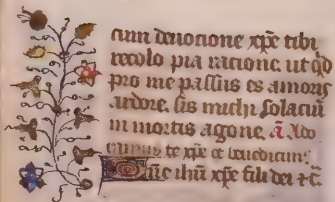 cum deuocione xpe tibi
recolo pia racione. ut qd
pro me passus es amoris
ardore. sis michi solacium
in mortis agone. a. Ado
ramus te xpe et benedicim.
Dne ihu xpe fili dei rc.